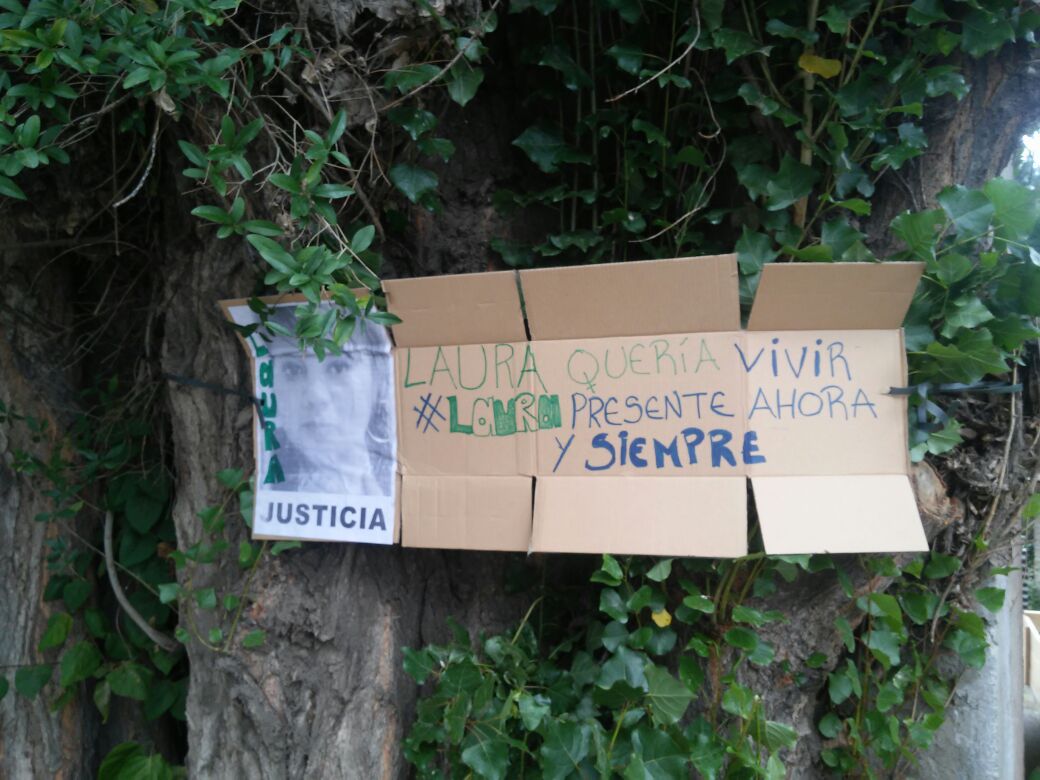 LaURA
JUSTICIA
LAURA QUERÍA VIVIR
#LaURa PRESENTE AHORA
Y SIEMPRE